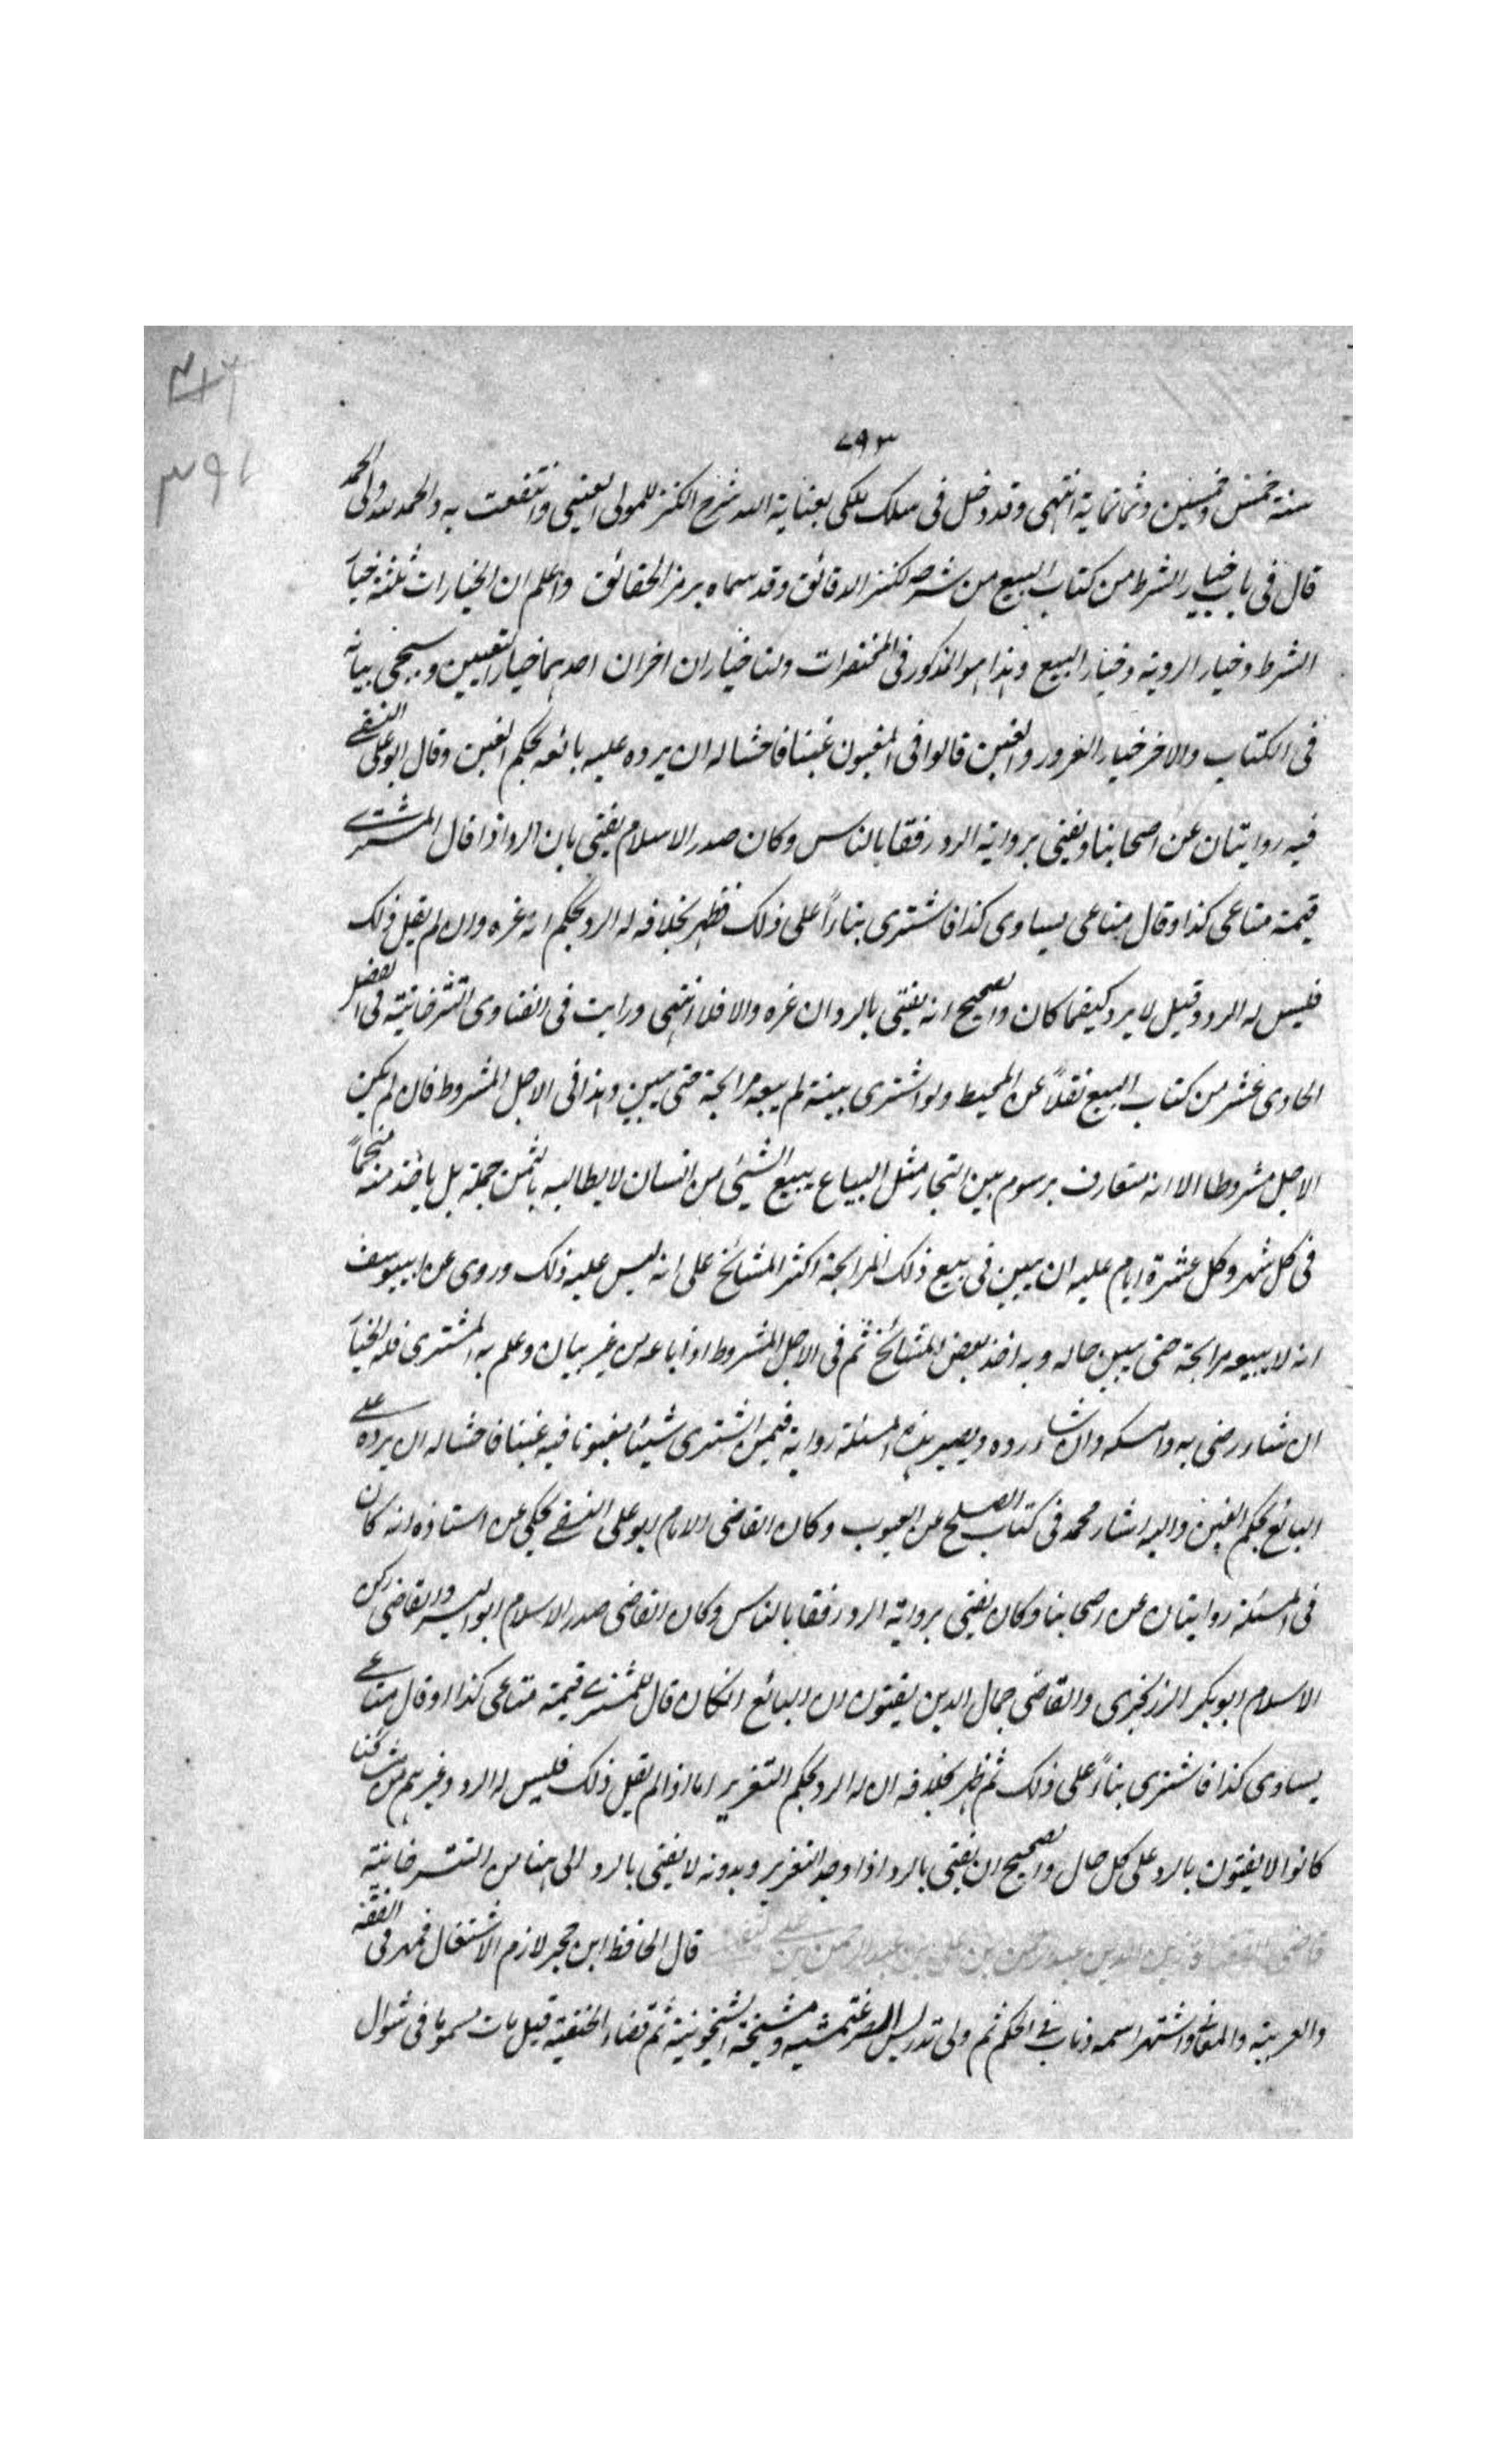 ٧٩٣
سنة خمس وخمسين وثمانماية انتهى وقد دخل فى سلك ملكى بعناية الله شرح الكنز للمولى العينى وانتفعت به والحمد لله ولى الحمد
قال فى باب خيار الشرط من كتاب البيع من شرحه لكنز الدقائق وقد سماه برمز الحقائق واعلم ان الخيارات ثلثة خيار
الشرط وخيار الروية وخيار البيع وهذا هو المذكور فى المختصرات ولنا خياران اخران احدهما خيار التعيين وسيجى بيانه
فى الكتاب والاخر خيار الغرور والغبن قالوا فى المغبون غبنا فاحشا له ان يرده عليه بائعه بحكم الغبن وقال ابو على النسفے
فيه روايتان عن اصحابنا ويفتى برواية الرد رفقا بالناس وكان صدر الاسلام يفتى بان الرد اذا قال المشترے
قيمة متاعى كذا وقال متاعى يساوى كذا فاشترى بناءً على ذلك فظهر بخلافه له الرد بحكم انه غره وان لم يقل ذلك
فليس له الرد وقيل لا يرد كيفما كان والصحيح انه يفتى بالرد ان غره والا فلا انتهى ورايت فى الفتاوى التترخانية فى الفصل
الحادى عشر من كتاب البيع نقلاً عن المحيط ولو اشترى بينة لم يبعه مرابحة حتى يبين وهذا فى الاجل المشروط فان لم يكن
الاجل مشروطا الا انه متعارف برسوم بين التجار مثل البياع يبيع الشيئ من انسان لا يطالبه بالثمن جملة بل ياخذ منه منجماً
فى كل شهر وكل عشرة ايام عليه ان يبين فى بيع ذلك المرابحة اكثر المشائخ على انه ليس عليه ذلك وروى عن ابيوسف
انه لا يبيعه مرابحة حتى يبين حاله وبه اخذ بعض المشائخ ثم فى الاجل المشروط اذا باعه من غير بيان وعلم به المشترى فله الخيار
ان شاء رضى به وامسكه وان شاء رده ويصير هذه المسئلة رواية فيمن اشترى شيئا مغبونا فيه غبنا فاحشا له ان يرده علے
البائع بحكم الغبن واليه اشار محمد فى كتاب الصلح عن العيوب وكان القاضى الامام ابو على النسفے يحكى عن استاذه انه كان
فى المسئلة روايتان عن اصحابنا وكان يفتى برواية الرد رفقا بالناس وكان القاضى صدر الاسلام ابو اليسر والقاضى ركن
الاسلام ابو بكر الزرنجرى والقاضى جمال الدين يفتون ان البائع انكان قال للمشترے قيمة متاعى كذا او قال متاعے
يساوى كذا فاشترى بناءً على ذلك ثم ظهر بخلافه ان له الرد بحكم التغرير اما اذا لم يقل ذلك فليس له الرد وغيرهم من مشائخنا
كانوا لا يفتون بالرد على كل حال والصحيح ان يفتى بالرد اذا وجد التغرير وبدونه لا يفتى بالرد الى هنا من التترخانية
قاضى القضاة زين الدين عبد الرحمن بن على بن عبد الرحمن بن على قال الحافظ ابن حجر لازم الاشتغال فمهر فى الفقه
والعربية والمعانى واشتهر اسمه وناب فى الحكم ثم ولى تدريس الصرغتمشيه ومشيخة الشيخونية ثم قضاء الحنفية قيل مات مسموما فى شوال